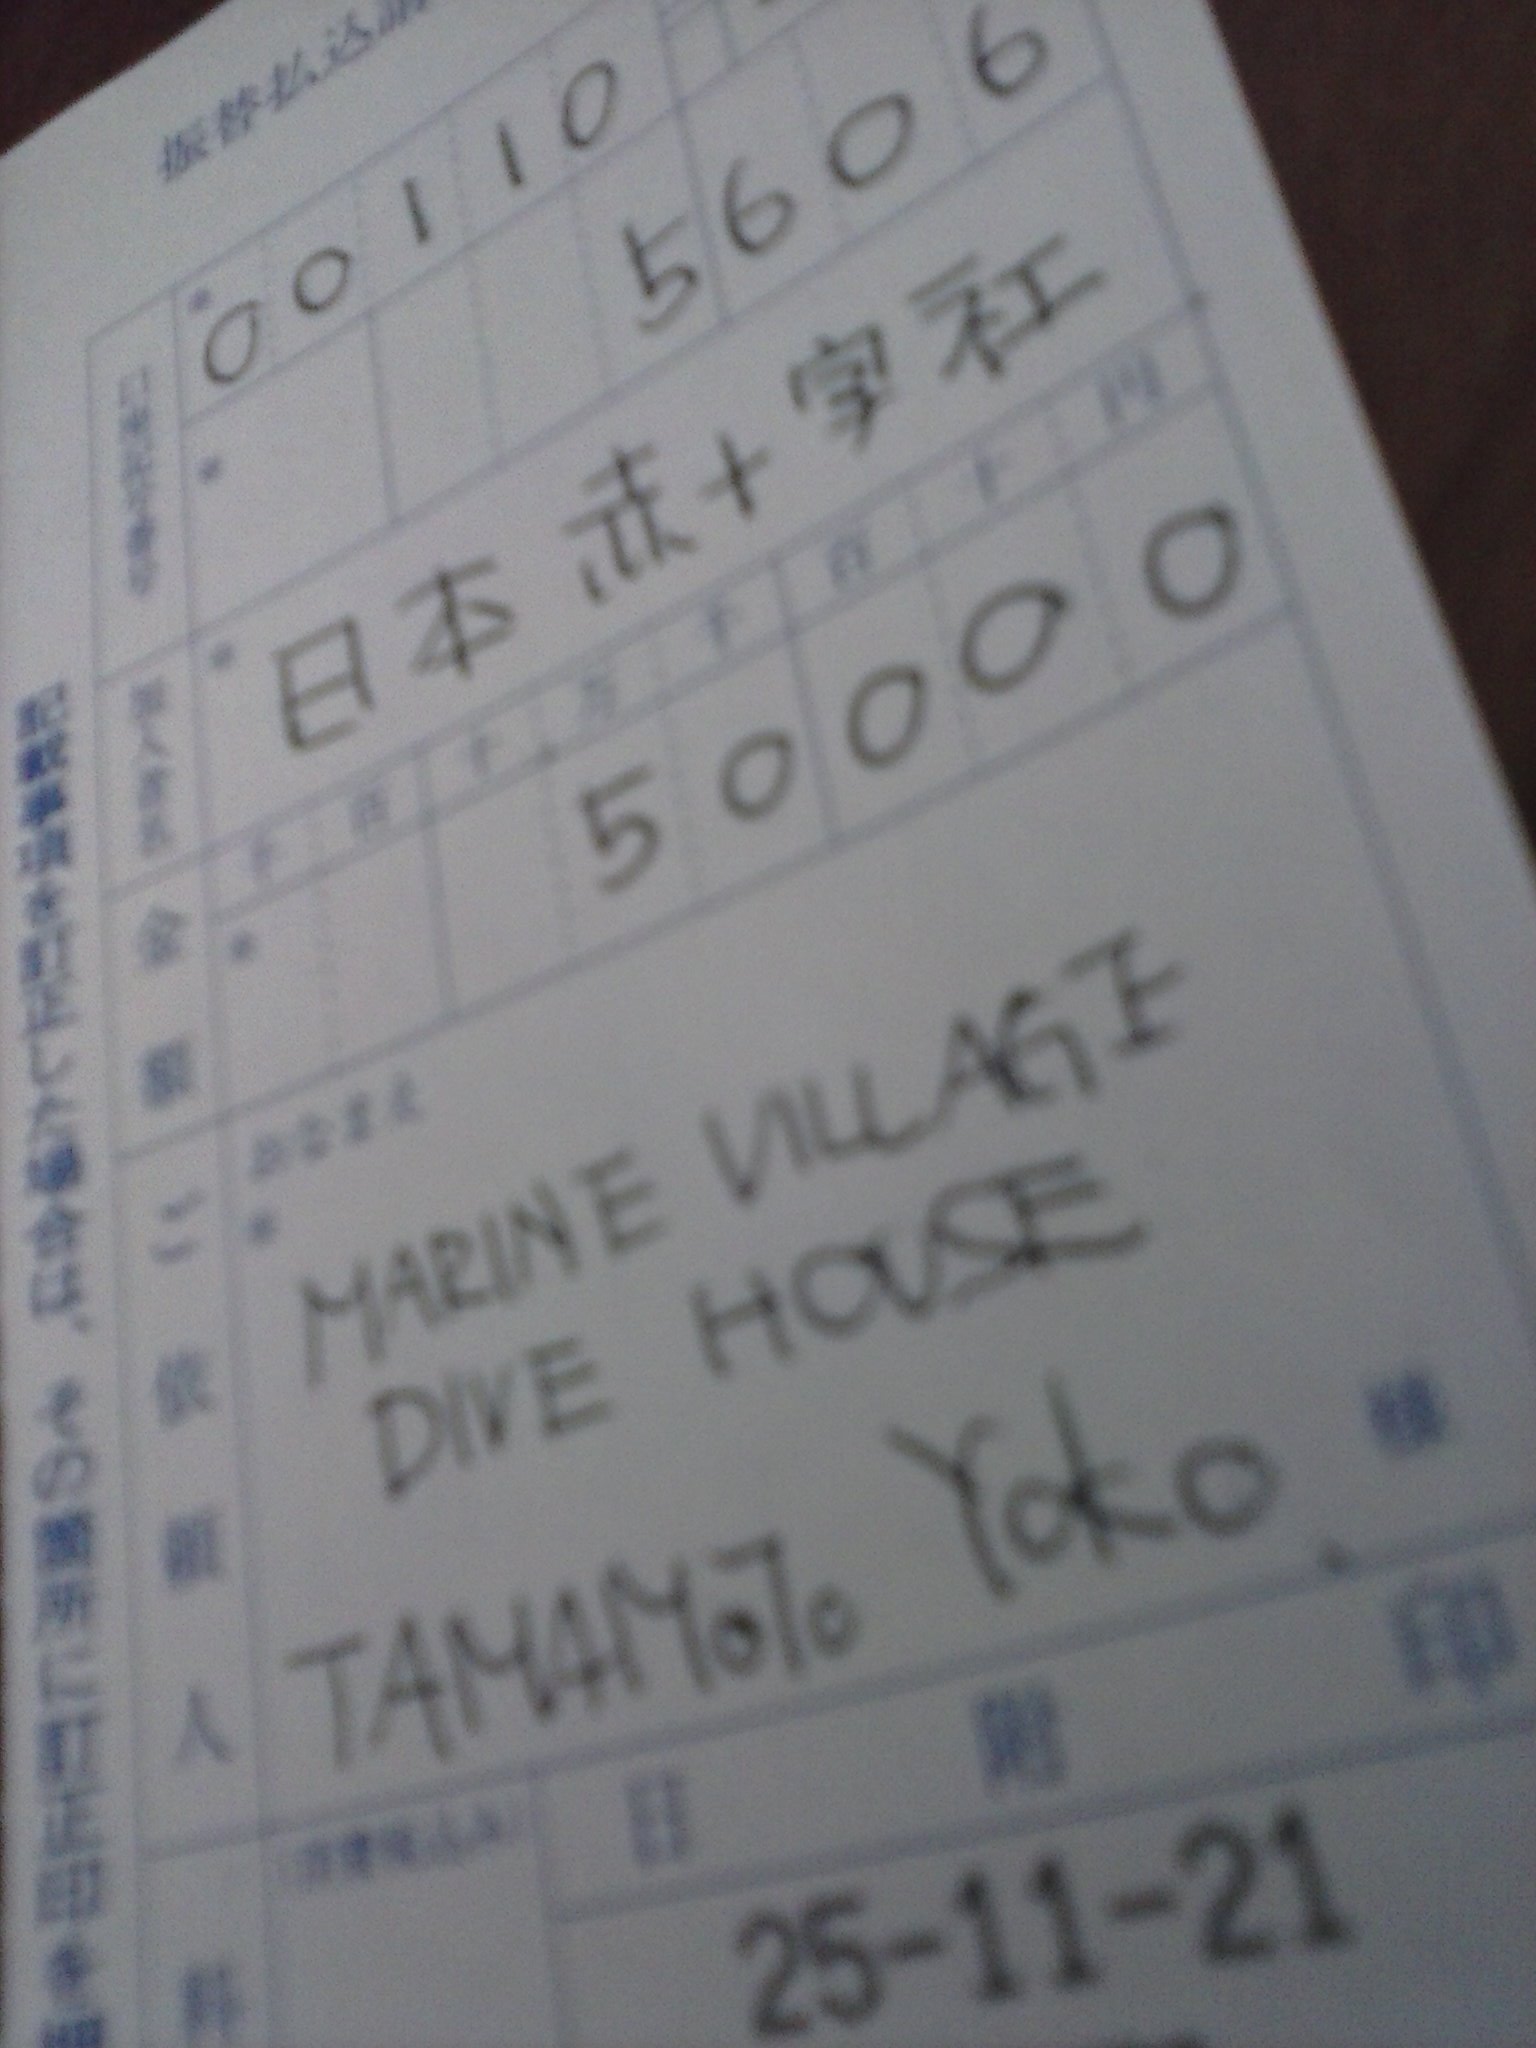 振替払込請
口座記号番号
00110
5606
加入者名
日本赤十字社
千百十万千百十円
金額
50000
ご依頼人
おなまえ
MARINE VILLAGE
DIVE HOUSE
TAMAMOTO Yoko
様
料
(消費税込み)
日附印
25-11-21
記載事項を訂正した場合は、その箇所に訂正印を